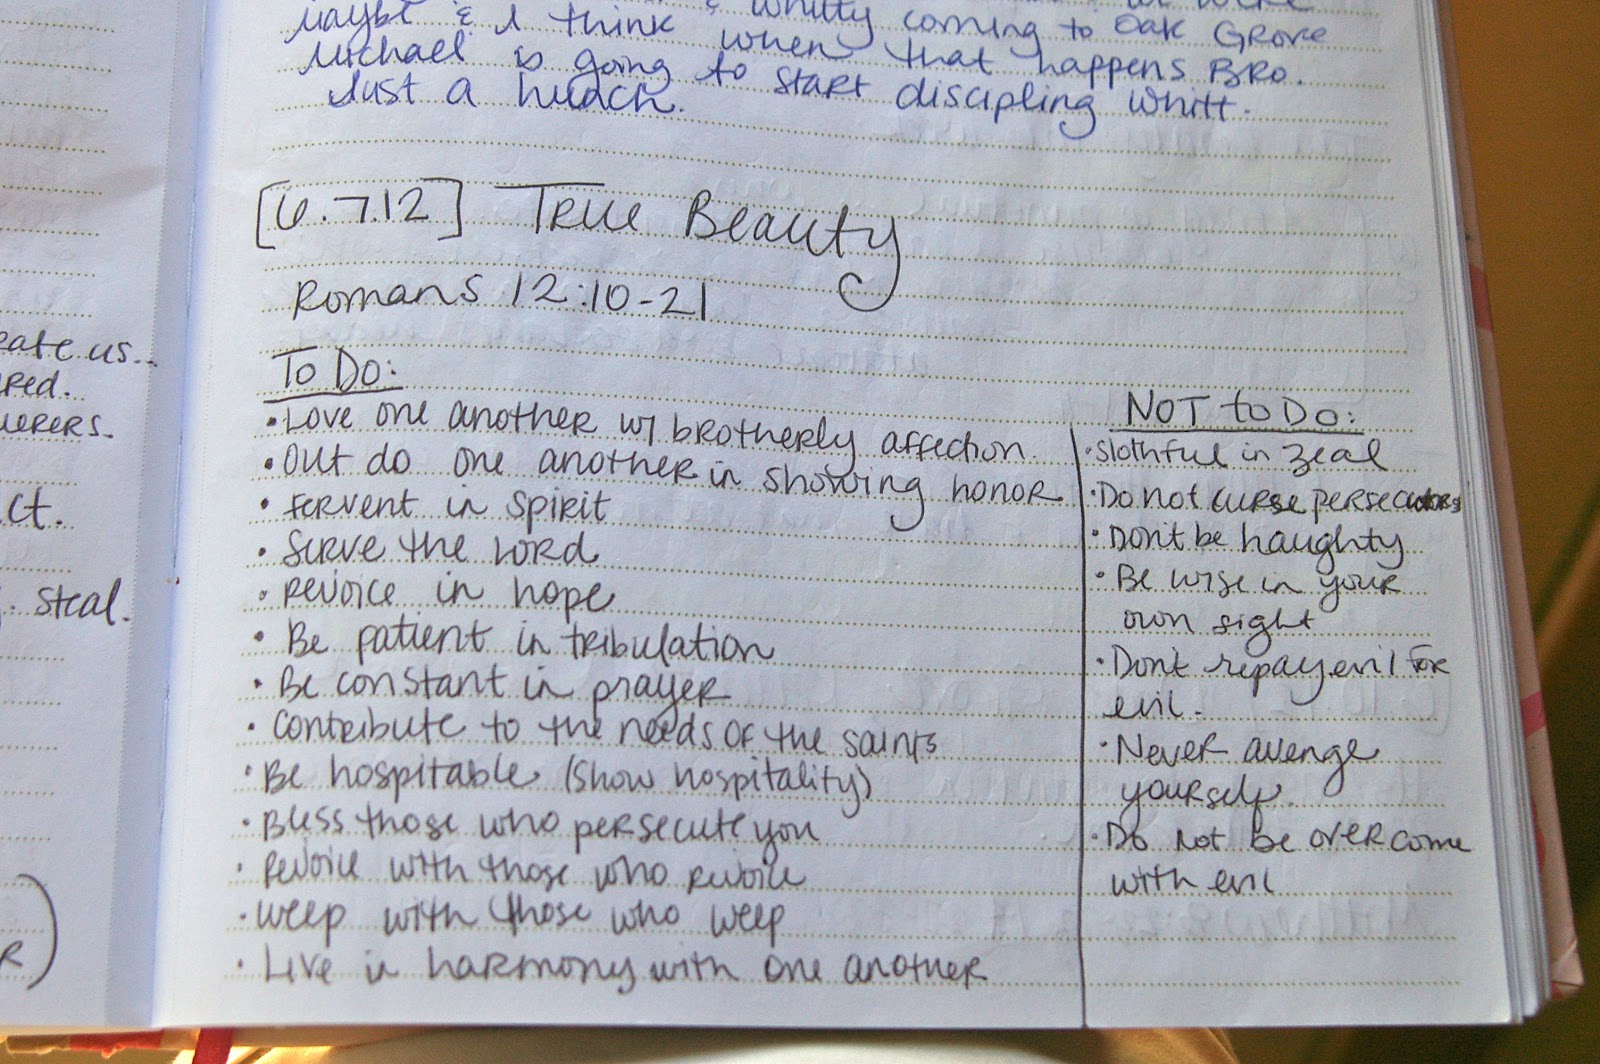 maybe & I think & Whitty coming to Oak Grove
when that happens Bro.
Michael is going to start discipling Whitt.
Just a hunch.
[6.7.12] True Beauty
Romans 12:10-21
To Do:
• Love one another w/ brotherly affection.
• Out do one another in showing honor
• fervent in spirit
• Serve the Lord
• Rejoice in hope
• Be patient in tribulation
• Be constant in prayer
• contribute to the needs of the saints
• Be hospitable (show hospitality)
• Bless those who persecute you
• Rejoice with those who rejoice
• weep with those who weep
• Live in harmony with one another
NOT to Do:
• Slothful in zeal
• Do not curse persecutors
• Don't be haughty
• Be wise in your
own sight
• Don't repay evil for
evil.
• Never avenge
yourself.
• Do not be overcome
with evil
eate us...
red.
uerers.
ct.
. steal.
R)